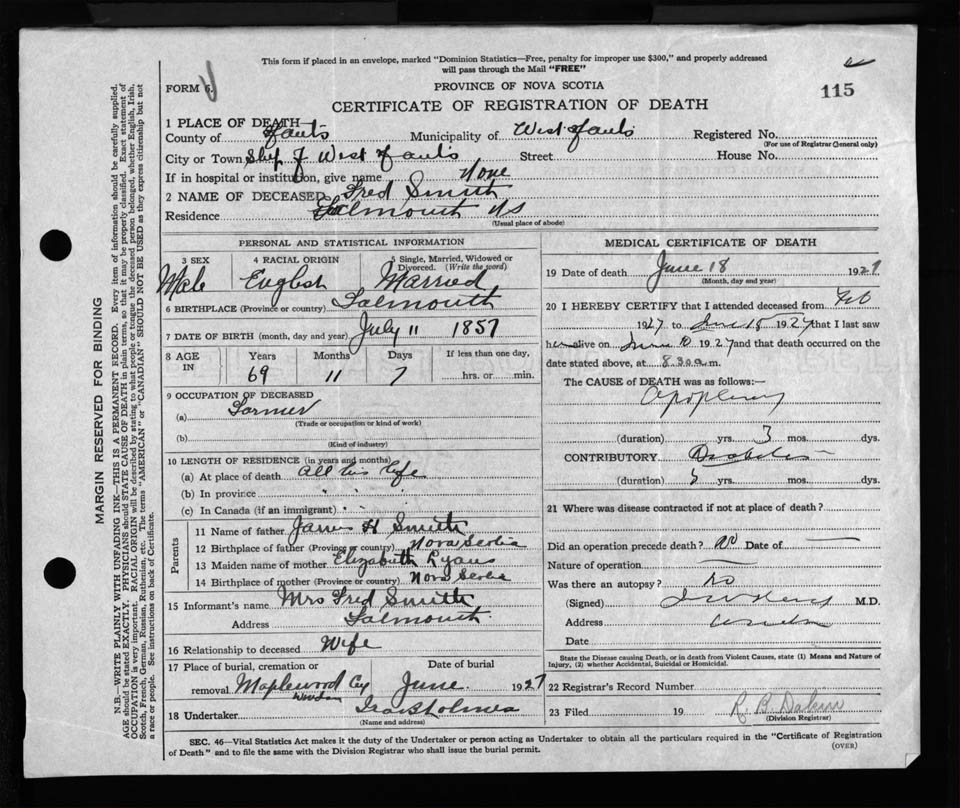 This form if placed in an envelope, marked "Dominion Statistics—Free, penalty for improper use $300," and properly addressed
will pass through the Mail "FREE"
FORM 6.
PROVINCE OF NOVA SCOTIA
115
CERTIFICATE OF REGISTRATION OF DEATH
1 PLACE OF DEATH—
County of Hants Municipality of West Hants Registered No.
(For use of Registrar General only)
City or Town Shep J West Hants Street House No.
If in hospital or institution, give name None
2 NAME OF DECEASED Fred Smith
Residence Falmouth NS
(Usual place of abode)
PERSONAL AND STATISTICAL INFORMATION
3 SEX 4 RACIAL ORIGIN 5 Single, Married, Widowed or Divorced. (Write the word)
Male English Married
6 BIRTHPLACE (Province or country) Falmouth
7 DATE OF BIRTH (month, day and year) July 11 1857
8 AGE IN Years Months Days If less than one day,
69 11 7 hrs. or min.
9 OCCUPATION OF DECEASED
(a) Farmer
(Trade or occupation or kind of work)
(b)
(Kind of industry)
10 LENGTH OF RESIDENCE (in years and months)
(a) At place of death all his life
(b) In province " " "
(c) In Canada (if an immigrant) " "
Parents
11 Name of father James H Smith
12 Birthplace of father (Province or country) Nova Scotia
13 Maiden name of mother Elizabeth Lyan
14 Birthplace of mother (Province or country) Nova Scotia
15 Informant's name Mrs Fred Smith
Address Falmouth
16 Relationship to deceased Wife
17 Place of burial, cremation or removal Date of burial
Maplewood Cy Windsor June 1927
18 Undertaker Ira B Holmes
(Name and address)
MEDICAL CERTIFICATE OF DEATH
19 Date of death June 18 1927
(Month, day and year)
20 I HEREBY CERTIFY that I attended deceased from Feb
1927 to June 18 1927 that I last saw
him alive on June 18 1927 and that death occurred on the
date stated above, at 8.30 a m.
The CAUSE OF DEATH was as follows:—
Apoplexy
(duration) yrs. 3 mos. dys.
CONTRIBUTORY Diabetes
(duration) 5 yrs. mos. dys.
21 Where was disease contracted if not at place of death?
Did an operation precede death? no Date of
Nature of operation
Was there an autopsy? no
(Signed) M.D.
Address Windsor
Date
State the Disease causing Death, or in death from Violent Causes, state (1) Means and Nature of
Injury, (2) whether Accidental, Suicidal or Homicidal.
22 Registrar's Record Number
23 Filed 19 R. B. Dakin
(Division Registrar)
SEC. 46—Vital Statistics Act makes it the duty of the Undertaker or person acting as Undertaker to obtain all the particulars required in the "Certificate of Registration
of Death" and to file the same with the Division Registrar who shall issue the burial permit.
(OVER)
MARGIN RESERVED FOR BINDING
N.B.—WRITE PLAINLY WITH UNFADING INK—THIS IS A PERMANENT RECORD. Every item of information should be carefully supplied.
AGE should be stated EXACTLY. PHYSICIANS should STATE CAUSE OF DEATH in plain terms, so that it may be properly classified. Exact statement of
OCCUPATION is very important. RACIAL ORIGIN will be described by stating to what people or tongue the deceased person belonged, whether English, Irish,
Scotch, French, German, Russian, Ruthenian, etc. The terms "AMERICAN" or "CANADIAN" SHOULD NOT BE USED as they express citizenship but not
a race or people. See instructions on back of Certificate.